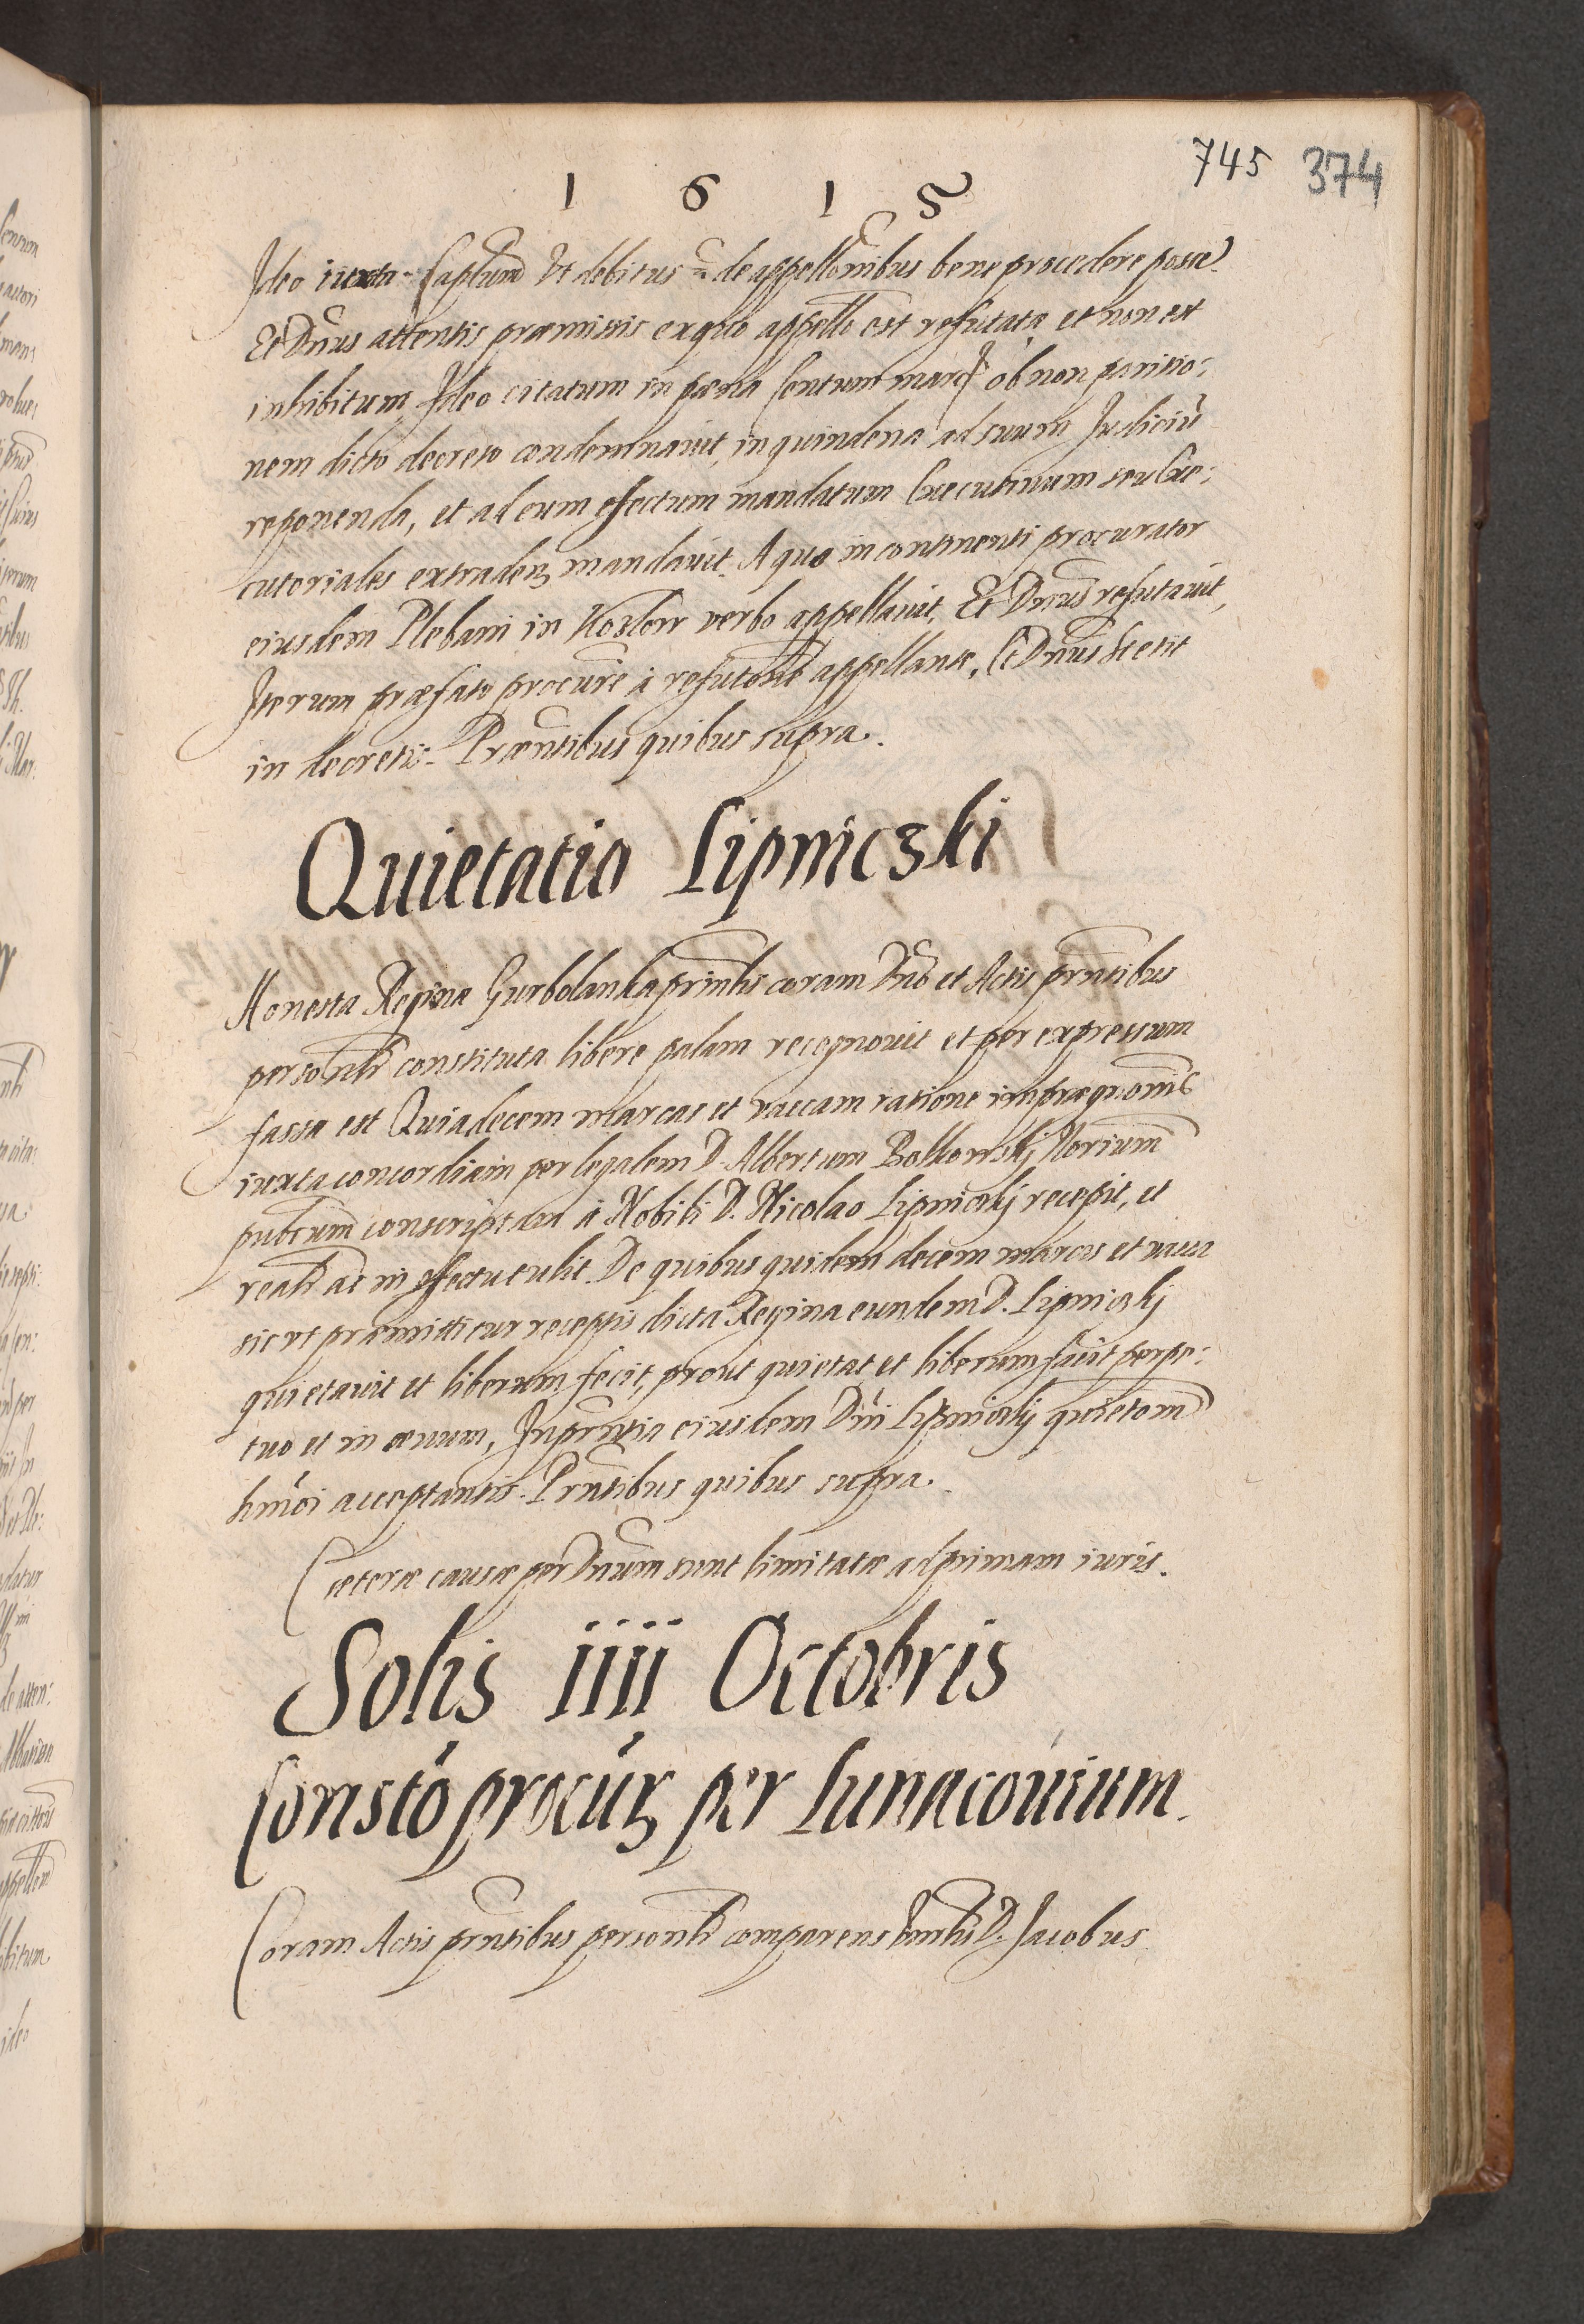 745 374
1 6 1 5
Ideo iuxta Captum Vt debitus de appellōnibus bene procedere posse
Et Dnus attentis præmissis ex quo appellō est refutata et non est
inhibitum Ideo citatum in pæna Centum marc ob non paritio:
nem dicto decreto condemnauit, in quindena ad suum Judiciū
reponenda, et ad eum effectum mandatum Executiuum seu Exe:
cutoriales extradenz mandauit. A quo in continenti procurator
eiusdem Plebani in Kozlow verbo appellauit, Et Dnus refutauit,
Iterum præfato procure à refutone appellante, Et Dnus stetit
in decretis. Præntibus quibus supra.
Quietatio Lipniczki
Honesta Regina Gurbolanka prinlis coram Dno et Actis prntibus
personlr constituta libere palam recognouit et per expressum
fassa est Quia decem marcas et vaccam ratione imprægnonis
iuxta concordiam per legalem D. Albertum Bolkowskj Norium
publcum conscriptam à Nobili D. Nicolao Lipniczkj recepit, et
realr ac in effectu tulit. De quibus quidem decem marcis et vacca
sic vt præmittitur receptis dicta Regina eundem D. Lipniczkj
quietauit et liberum fecit, prout quietat et liberum facit perpe:
tuo et in æuum, In prntia eiusdem Dni Lipniczkj quietonem
hmoi acceptantis. Prntibus quibus supra.
Cæteræ causæ per Dnum sunt limitatæ ad primam iuris.
Solis iiii Octobris
Constō procūz per Lunacouium.
Coram Actis prntibus personlr comparens D. Jacobus